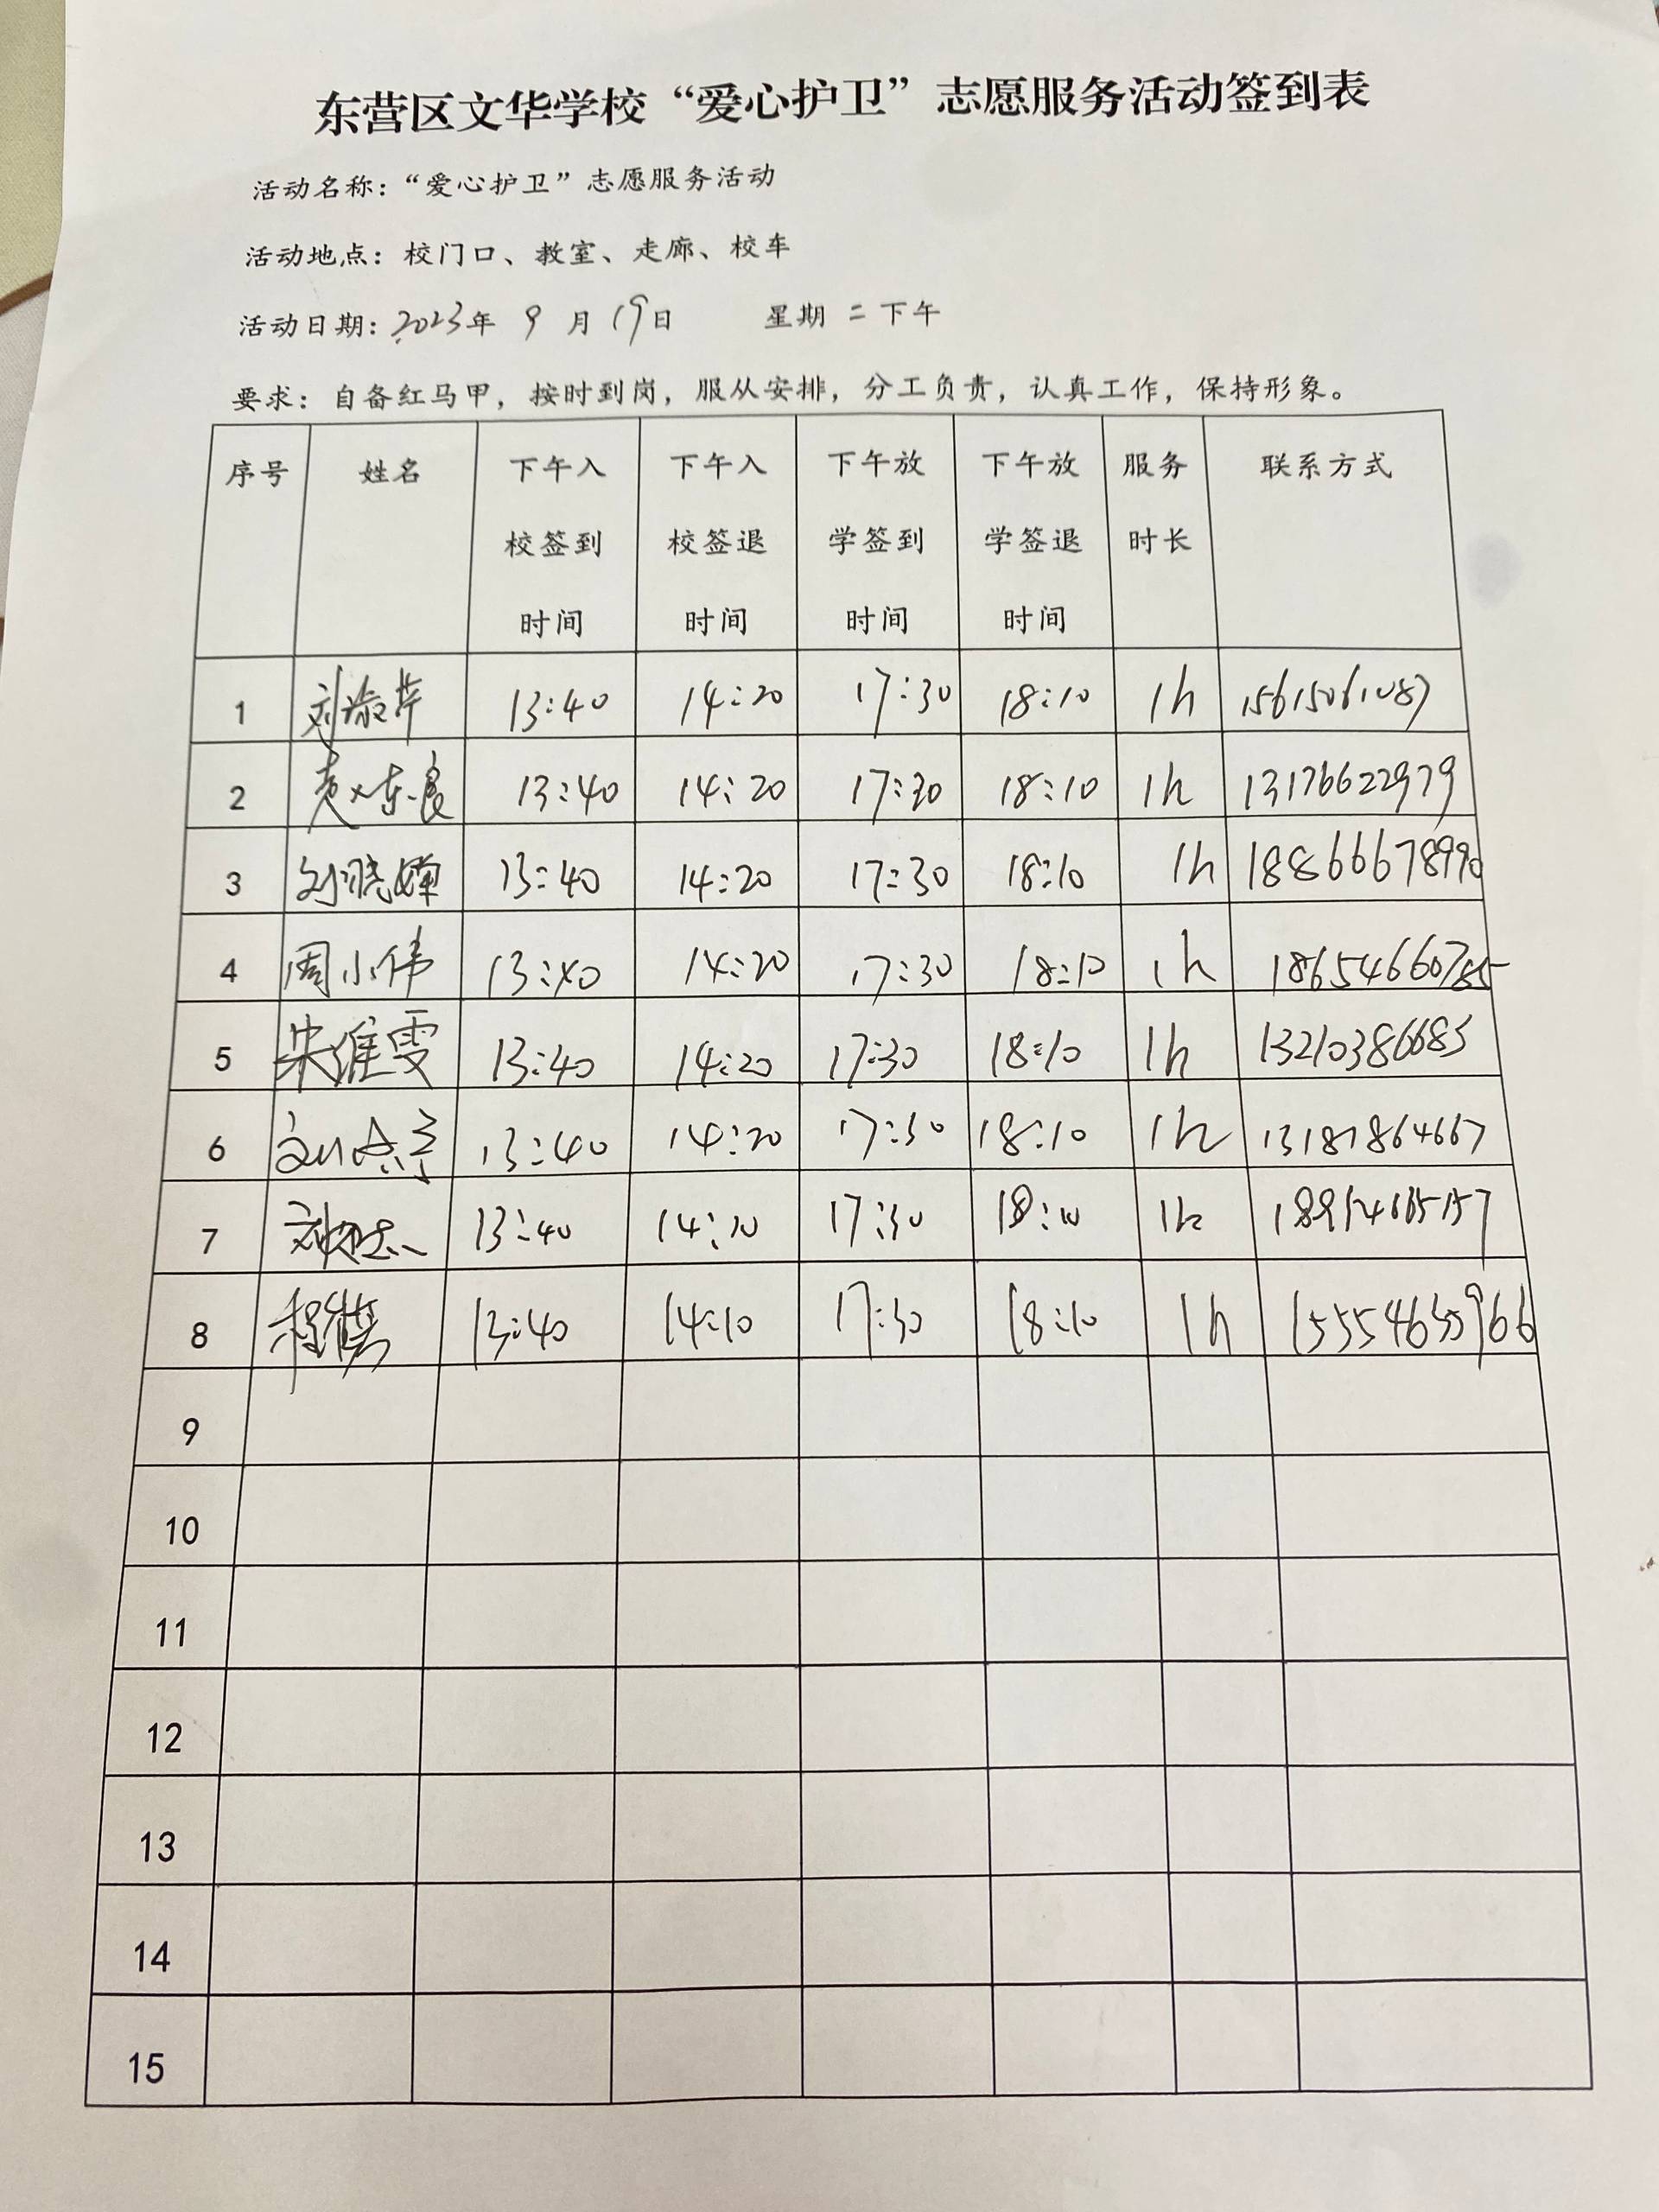 东营区文华学校“爱心护卫”志愿服务活动签到表
活动名称：“爱心护卫”志愿服务活动
活动地点：校门口、教室、走廊、校车
活动日期：2023年 9 月 19日 星期 二 下午
要求：自备红马甲，按时到岗，服从安排，分工负责，认真工作，保持形象。
序号 姓名 下午入校签到时间 下午入校签退时间 下午放学签到时间 下午放学签退时间 服务时长 联系方式
1 刘淑芹 13:40 14:20 17:30 18:10 1h 15615061087
2 13:40 14:20 17:30 18:10 1h 13176622979
3 刘晓婵 13:40 14:20 17:30 18:10 1h 18866678990
4 周小伟 13:40 14:20 17:30 18:10 1h
5 宋维雯 13:40 14:20 17:30 18:10 1h 13210386685
6 13:40 14:20 17:30 18:10 1h 13181864667
7 13:40 14:20 17:30 18:10 1h
8 13:40 14:10 17:30 18:10 1h
9
10
11
12
13
14
15